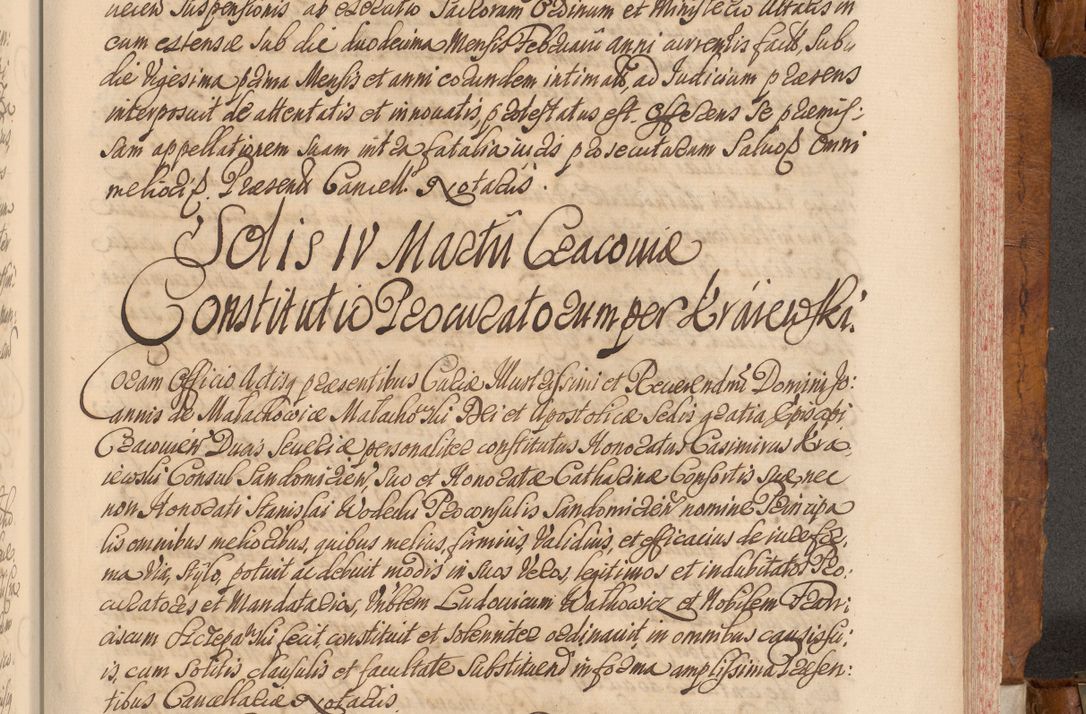 Suspensionis ab exequutio Sacrorum Ordinum et Ministerio Altaris in
eum extensæ Sub die duodecima Mensis Februarii anni currentis fact, Sub
die Vigesima prima Mensis et anni eorundem intimat, ad Judicium præsens
interposuit de attentatis et innovatis, protestatus est. offerens Se præmis-
sam appellationem suam intra fatalia iuris prosecuturam Salvo Omni
meliori. Præsent Cancell. Notariis.
Solis IV Martii Cracoviæ
Constitutio Procuratorum per Kráiewski.
Coram Officio Actisq præsentibus Curiæ Illustrissimi et Reverendmi Domini Jo:
annis de Małachowice Małachowski Dei et Apostolicæ Sedis gratia Episcopi
Cracovien Ducis Severiæ personaliter constitutus Honoratus Casimirus Kra
iewski Consul Sandomirien, Suo et Honoratæ Catharinæ Consortis suæ nec
non Honorati Stanislai Proconsulis Sandomirien nomine Principa
lis omnibus melioribus, quibus melius, firmius, Validius, et efficacius de iure for,
ma Via, Stylo, potuit ac debuit modis in Suos Veros, legitimos et indubitatos Pro:
curatores et Mandatarios, Nbilem Ludovicum Watkowicz et Nobilem Fran:
ciscum fecit constituit et solenniter ordinavit, in omnibus causis su:
is, cum Solitis clausulis et facultate Substituend in forma amplissima Præsen:
tibus Cancellariæ Notariis.